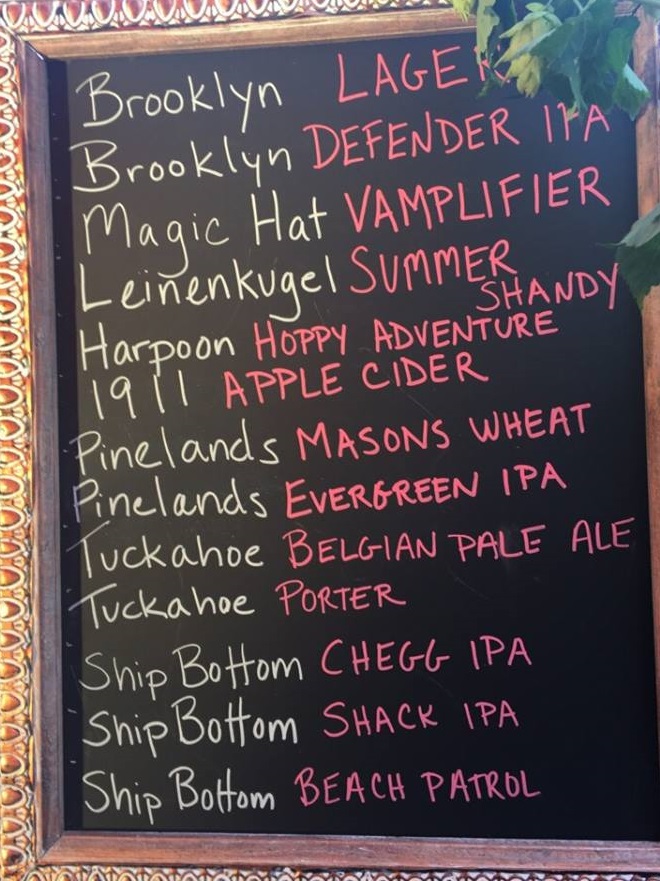 Brooklyn LAGER
Brooklyn DEFENDER IPA
Magic Hat VAMPLIFIER
Leinenkugel SUMMER
SHANDY
Harpoon HOPPY ADVENTURE
1911 APPLE CIDER
Pinelands MASONS WHEAT
Pinelands EVERGREEN IPA
Tuckahoe BELGIAN PALE ALE
Tuckahoe PORTER
Ship Bottom CHEGG IPA
Ship Bottom SHACK IPA
Ship Bottom BEACH PATROL